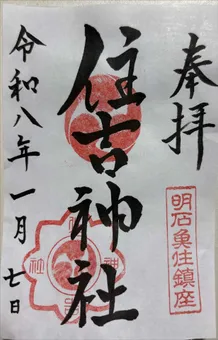 奉拝
住吉神社
令和八年一月七日
明石魚住鎮座